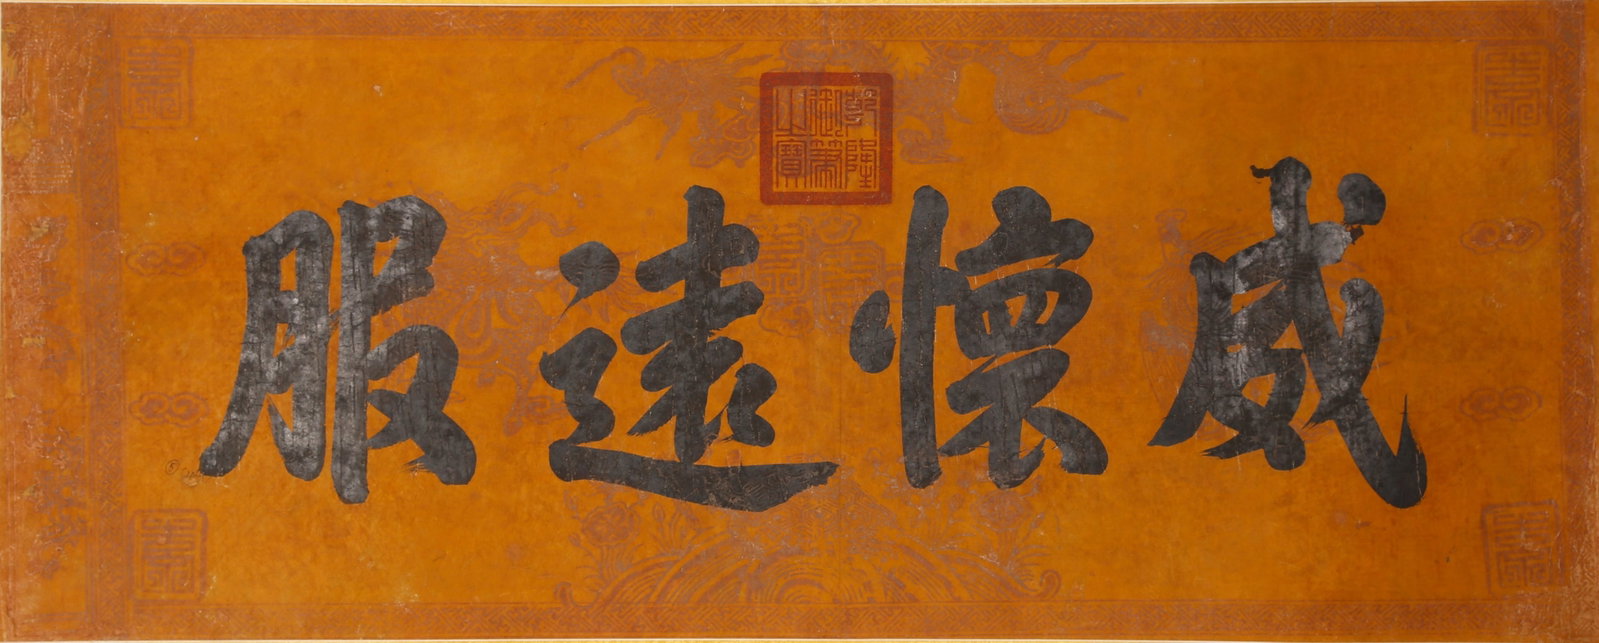 乾隆御筆之寶
威懷遠服